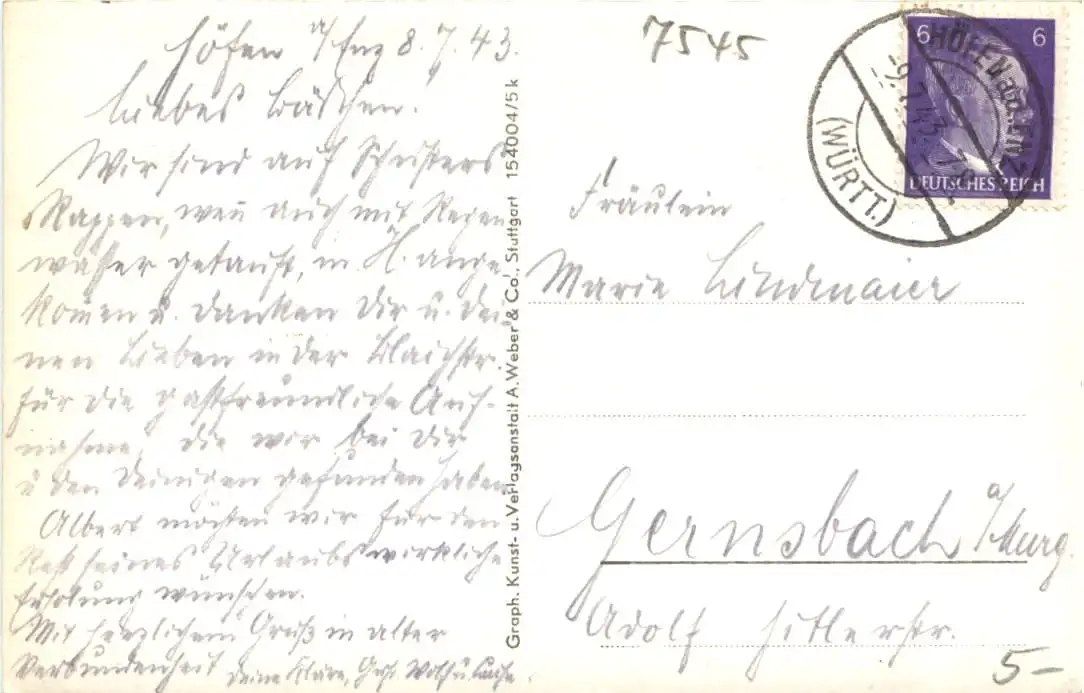 Höfen a/Enz 8. 7. 43.
Liebes Bäschen!
Wir sind auf Schusters
Rappen, wen̄ auch mit Regen
wasser getauft, in H. ange
kom̄en u. danken Dir u. Dei-
nen Lieben in der Bleichstr.
für die gastfreundliche Auf-
nahme, die wir bei Dir
u den Deinigen gefunden haben
Albert möchten wir für den
Rest seines Urlaubs wirkliche
Erholung wünschen.
Mit herzlichem Gruß in alter
Verbundenheit Deine Kläre,
Graph. Kunst- u. Verlagsanstalt A. Weber & Co., Stuttgart 154004/5k
7545
6 6
DEUTSCHES REICH
HÖFEN a.d. ENZ
-9.7.43.-7-8
(WÜRTT.)
Fräulein
Marie Lindmaier
Gernsbach a/Murg.
Adolf Hitlerstr.
5-